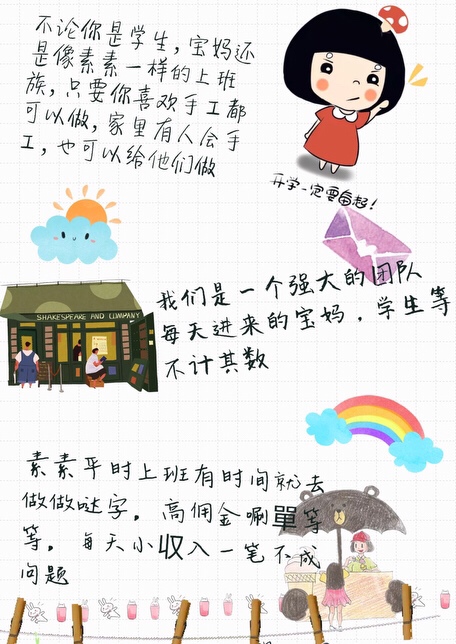 不论你是学生，宝妈还
是像素素一样的上班
族，只要你喜欢手工都
可以做，家里有人会手
工，也可以给他们做
开学一定要奋起！
我们是一个强大的团队
每天进来的宝妈，学生等
不计其数
SHAKESPEARE AND COMPANY
素素平时上班有时间就去
做做哒字，高佣金唰單等
等，每天小収入一笔不成
问题